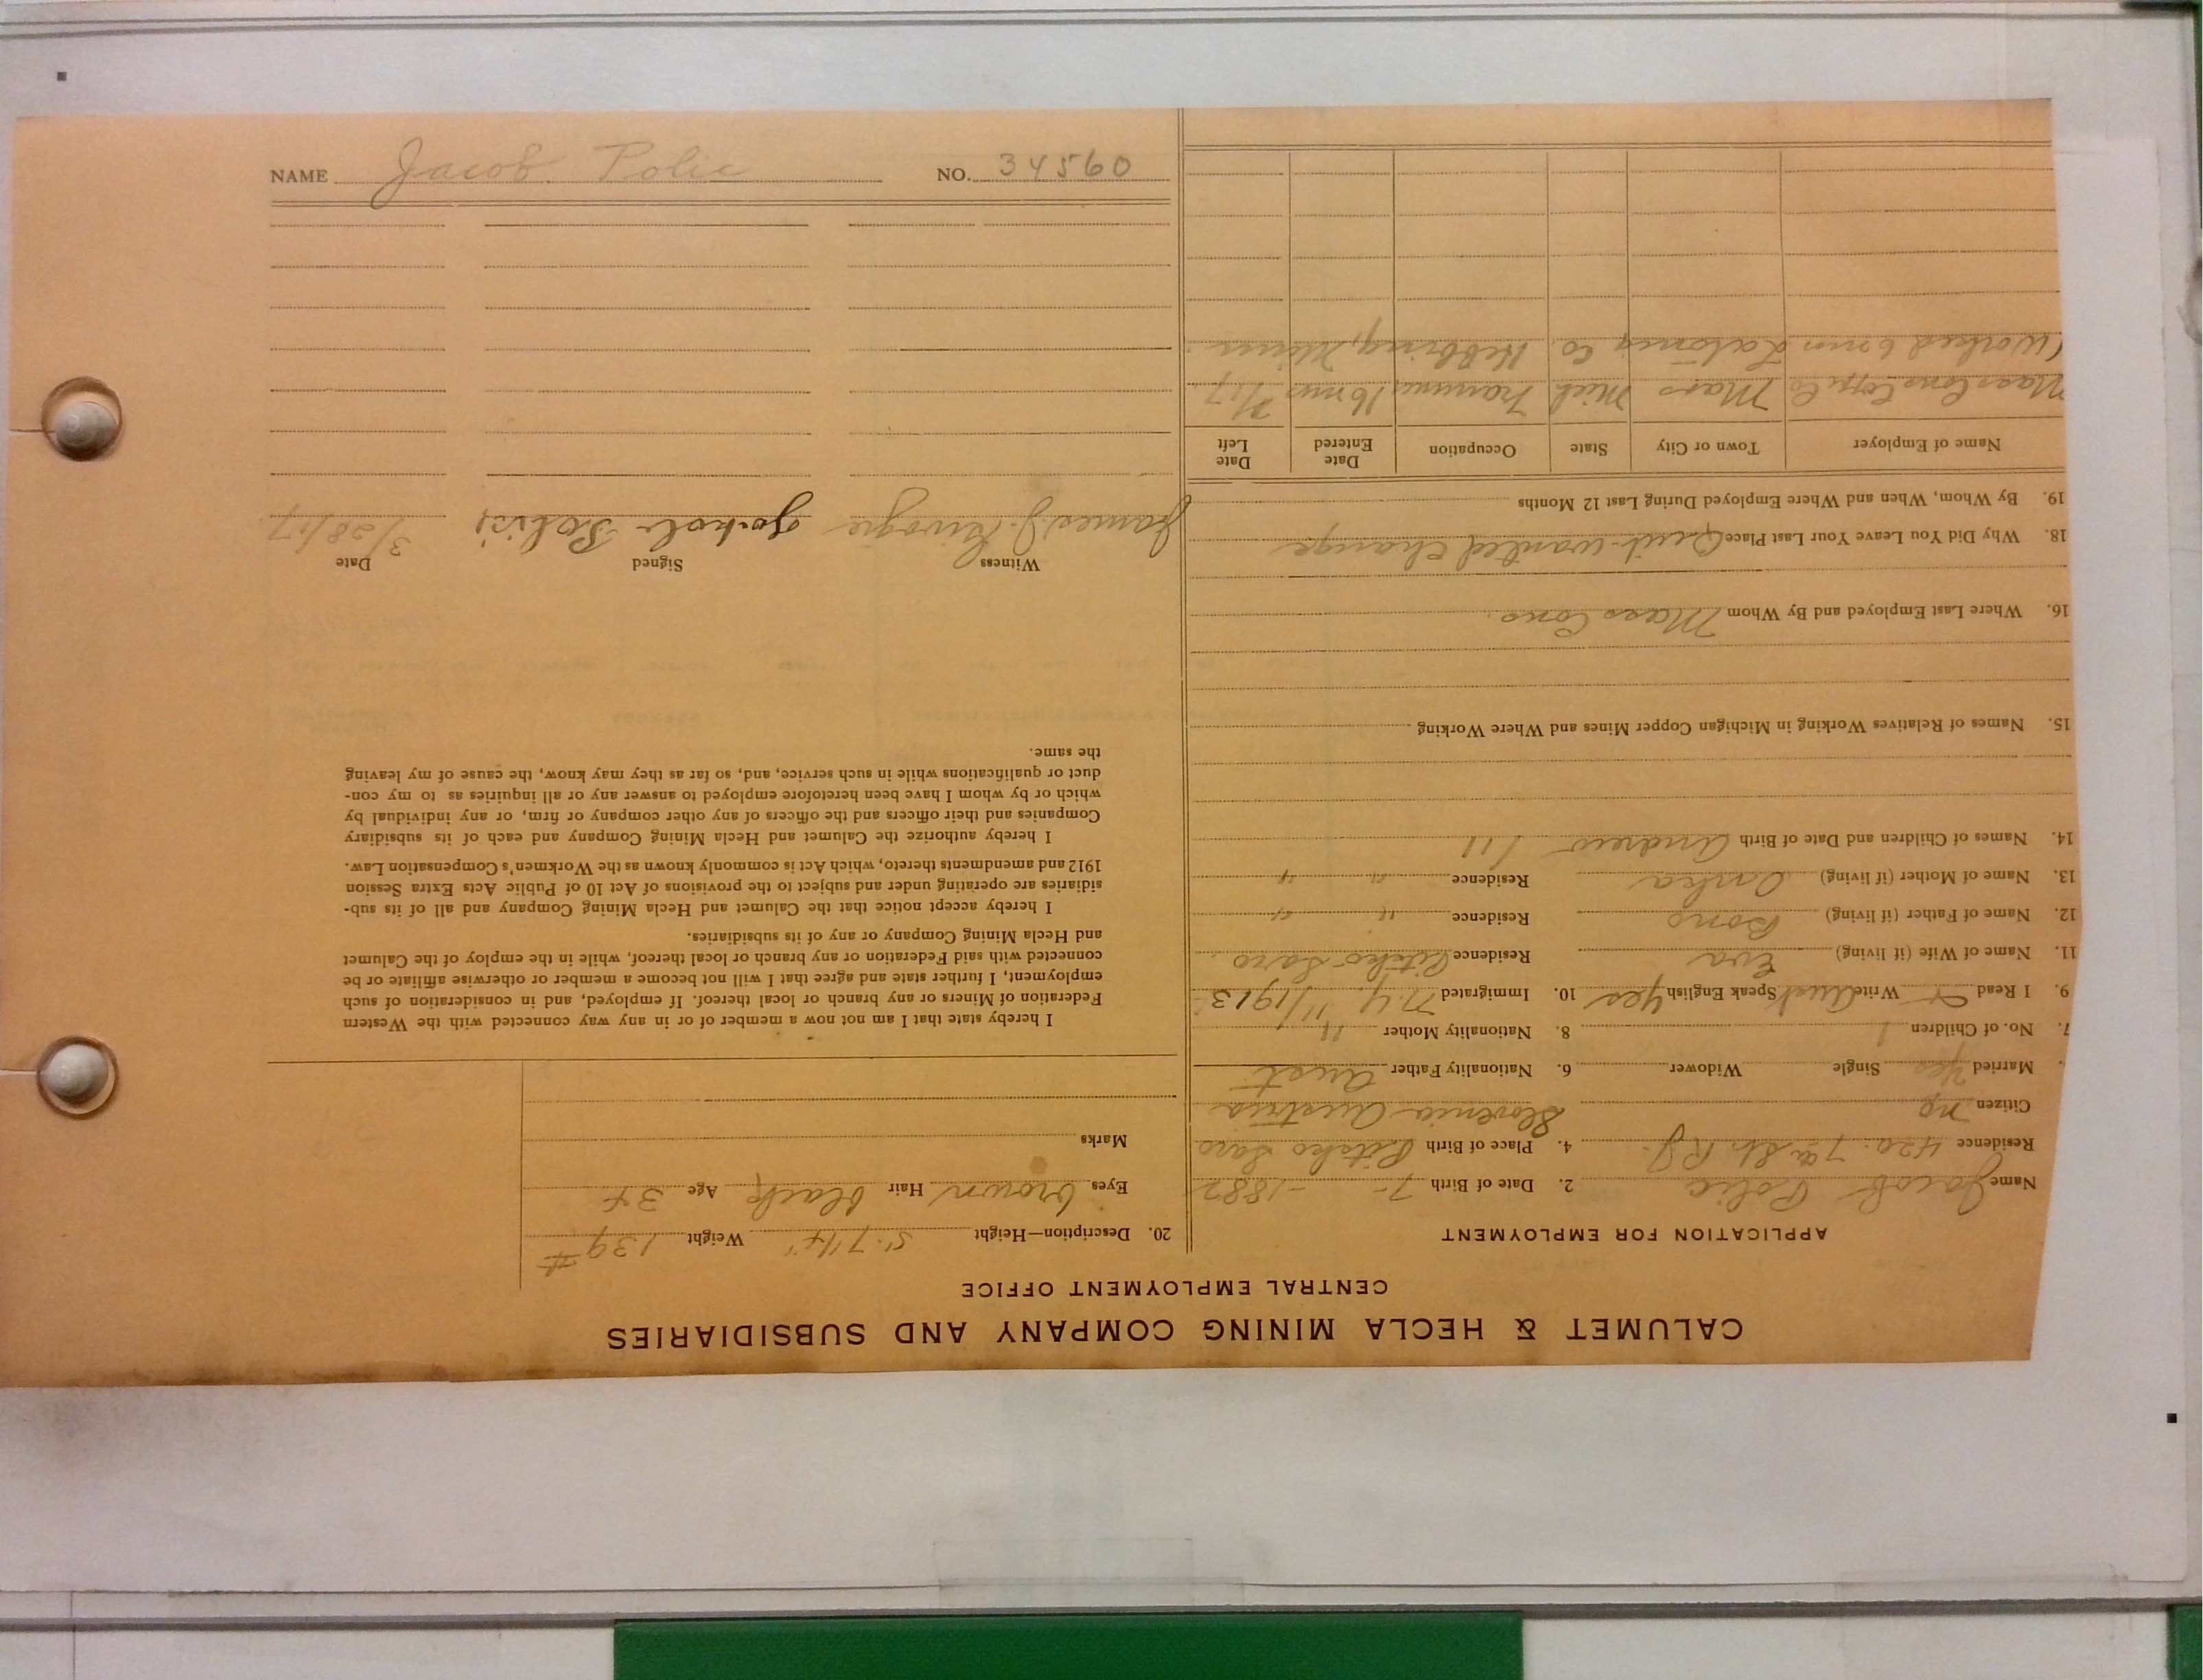 CALUMET & HECLA MINING COMPANY AND SUBSIDIARIES
CENTRAL EMPLOYMENT OFFICE
APPLICATION FOR EMPLOYMENT
Name Jacob Polic 2. Date of Birth 7 - - 1882
Residence 420. 7th St. R J. 4. Place of Birth
Citizen no Slovenia Austria
Married Yes Single Widower 6. Nationality Father Aust.
7. No. of Children 1 8. Nationality Mother "
9. I Read Write Aust Speak English Yes 10. Immigrated N Y 11/1913
11. Name of Wife (if living) Eva Residence
12. Name of Father (if living) Residence " "
13. Name of Mother (if living) Residence " "
14. Names of Children and Date of Birth Andrew
15. Names of Relatives Working in Michigan Copper Mines and Where Working
16. Where Last Employed and By Whom Mass Cons.
18. Why Did You Leave Your Last Place Quit-wanted change
19. By Whom, When and Where Employed During Last 12 Months
Name of Employer Town or City State Occupation Date Entered Date Left
Mass Cons Copp Co Mass Mich Trammer 16 mos /17
(Worked 6 mos Co. Hebbing, Minn.
20. Description—Height 5'. 7 1/4" Weight 139 #
Eyes brown Hair black Age 34
Marks
I hereby state that I am not now a member of or in any way connected with the Western
Federation of Miners or any branch or local thereof. If employed, and in consideration of such
employment, I further state and agree that I will not become a member or otherwise affiliate or be
connected with said Federation or any branch or local thereof, while in the employ of the Calumet
and Hecla Mining Company or any of its subsidiaries.
I hereby accept notice that the Calumet and Hecla Mining Company and all of its sub-
sidiaries are operating under and subject to the provisions of Act 10 of Public Acts Extra Session
1912 and amendments thereto, which Act is commonly known as the Workmen's Compensation Law.
I hereby authorize the Calumet and Hecla Mining Company and each of its subsidiary
Companies and their officers and the officers of any other company or firm, or any individual by
which or by whom I have been heretofore employed to answer any or all inquiries as to my con-
duct or qualifications while in such service, and, so far as they may know, the cause of my leaving
the same.
Witness Signed Date
James J. 3/28/17
NAME Jacob Polic NO. 34560